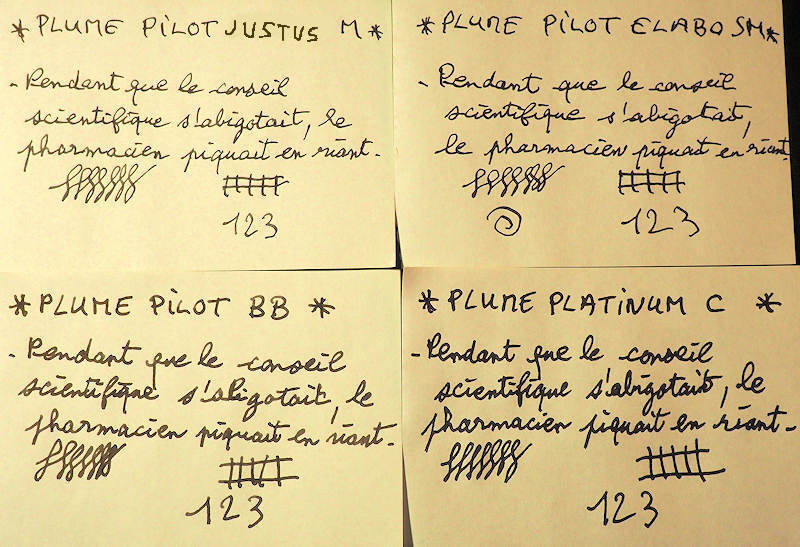 * PLUME PILOT JUSTUS M *
- Pendant que le conseil
scientifique s'abigotait, le
pharmacien piquait en riant.
123
* PLUME PILOT ELABO SM *
- Pendant que le conseil
scientifique s'abigotait,
le pharmacien piquait en riant.
123
* PLUME PILOT BB *
- Pendant que le conseil
scientifique s'abigotait, le
pharmacien piquait en riant.
123
* PLUME PLATINUM C *
- Pendant que le conseil
scientifique s'abigotait, le
pharmacien piquait en riant.
123